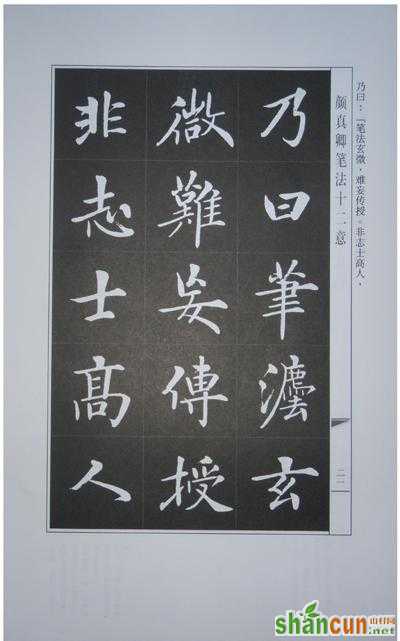 乃曰：「笔法玄微，难妄传授。非志士高人，
颜真卿笔法十二意
二二
乃曰筆灋玄
微難妄傳授
非志士髙人
shancun
山村网
.net